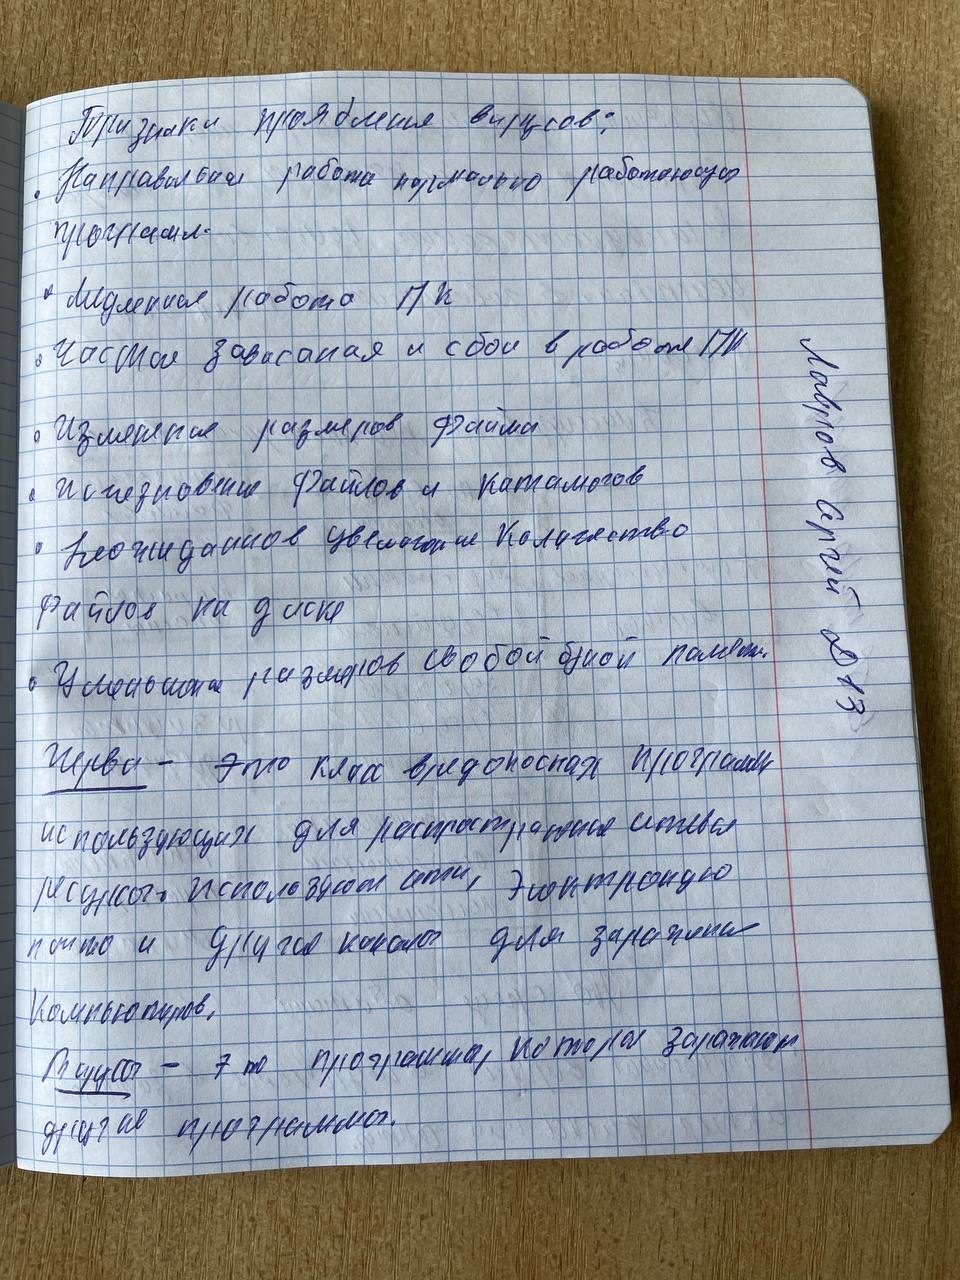 Признаки проявления вирусов:
• Неправильная работа нормально работающих
программ.
• Медленная работа ПК
• Частое зависания и сбои в работе ПК
• Изменение размеров файла
• Исчезновение файлов и каталогов
• Неожиданное увеличение количество
файлов на диске
• Уменьшение размеров свободной памяти.
Черви – это класс вредоносных программ
использующих для распространения сетевые
ресурсы. Используют сети, электронную
почту и другие каналы для заражения
компьютеров.
Вирусы – это программы, которые заражают
другие программы.
Лавров Сергей Д13